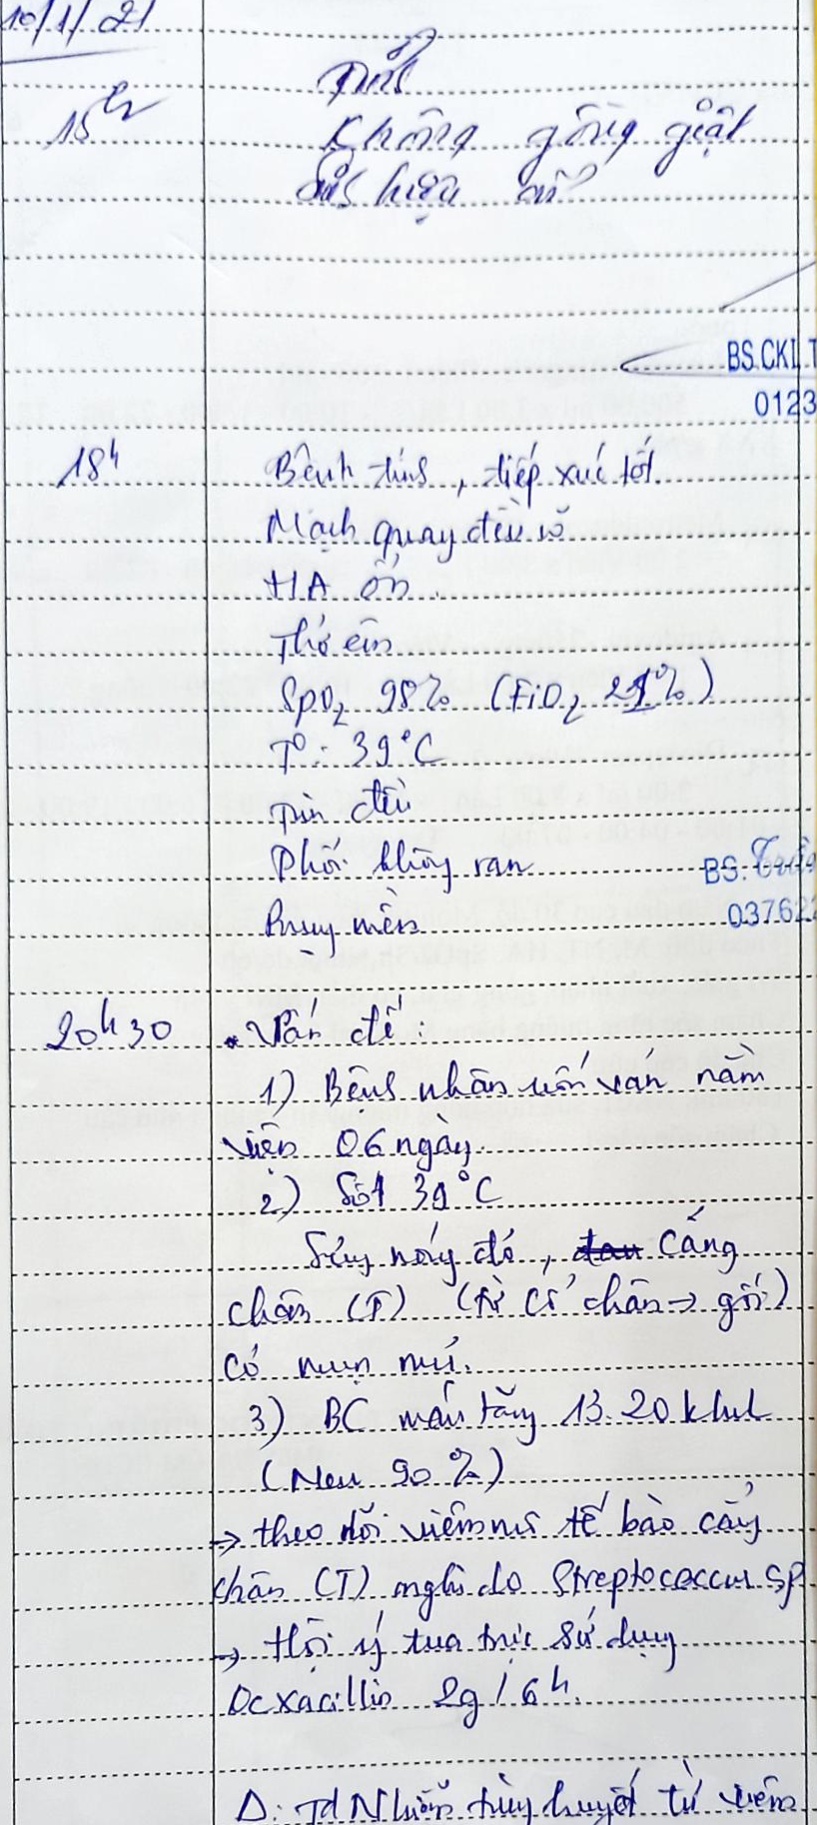 10/1/21
15h
Tỉnh
Không gồng giật
Sinh hiệu ổn
BS.CKI.T
0123
18h Bệnh tỉnh, tiếp xúc tốt
Mạch quay đều rõ
HA ổn
Thở êm
SpO2 98% (FiO2 21%)
T°: 39°C
Tim đều
Phổi không ran
BS. Trần
Bụng mềm
03762
20h30 * Vấn đề:
1) Bệnh nhân uốn ván nằm
viện 06 ngày
2) Sốt 39°C
Sưng nóng đỏ, đau Cẳng
chân (T) (từ cổ chân → gối)
có mụn mủ.
3) BC máu tăng 13.20 k/ul
(Neu 90%)
→ theo dõi viêm mô tế bào cẳng
chân (T) nghi do Streptococcus sp
→ Hội ý tua trực sử dụng
Ocxacillin 2g/6h.
Δ: Td Nhiễm trùng huyết từ viêm